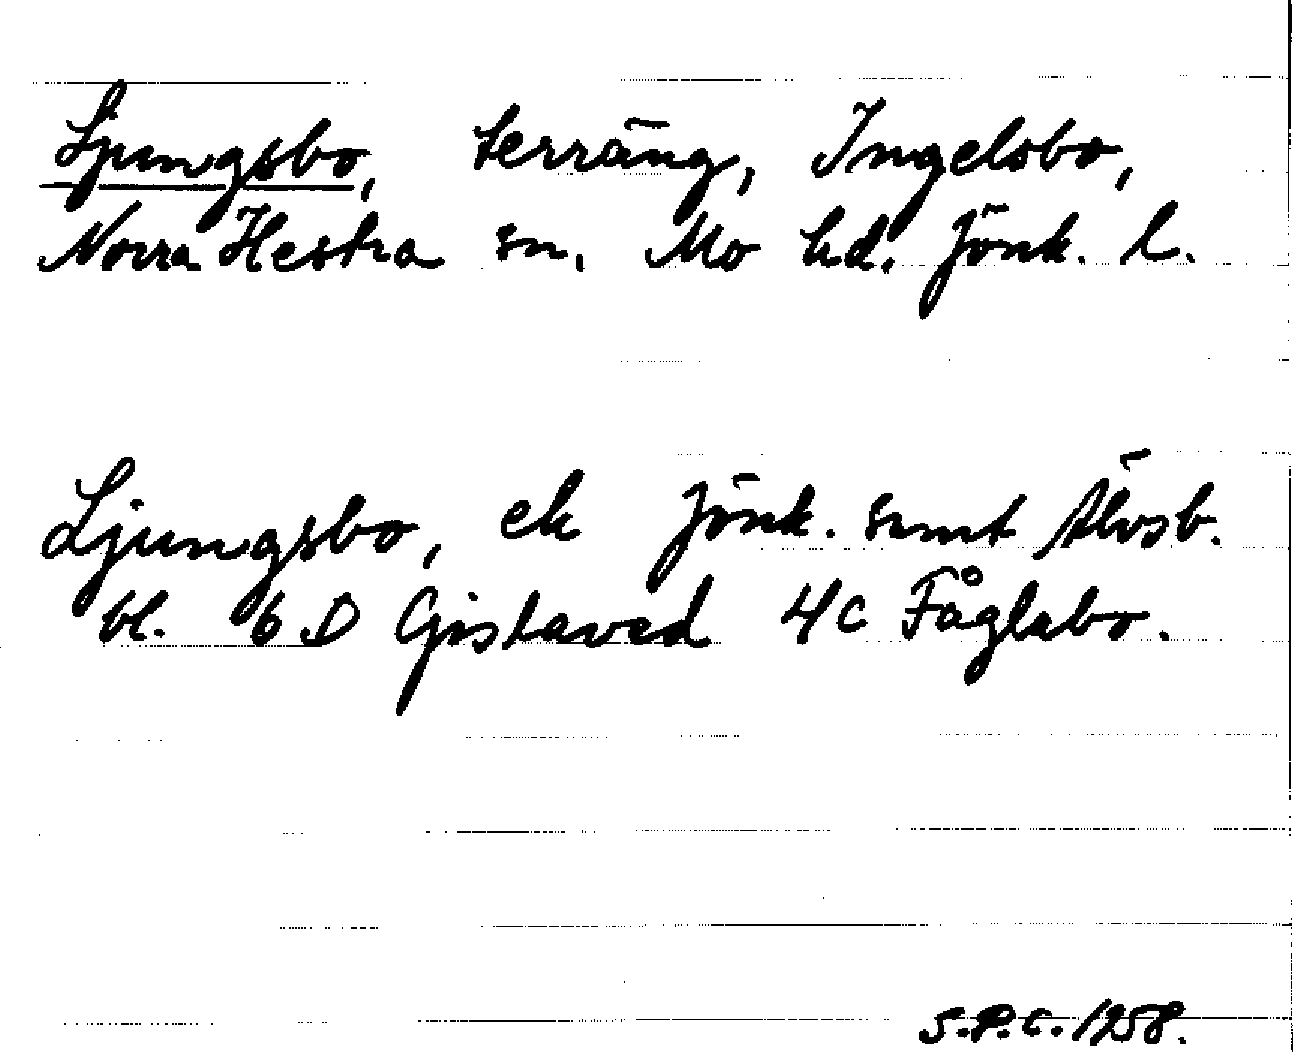 Ljungsbo, terräng, Ingelsbo,
Norra Hestra sn, Mo hd. Jönk. l.
Ljungsbo, ek Jönk. samt Älvsb.
bl. 6 D Gislaved 4c Fåglabo.
S.P.C. 1958.